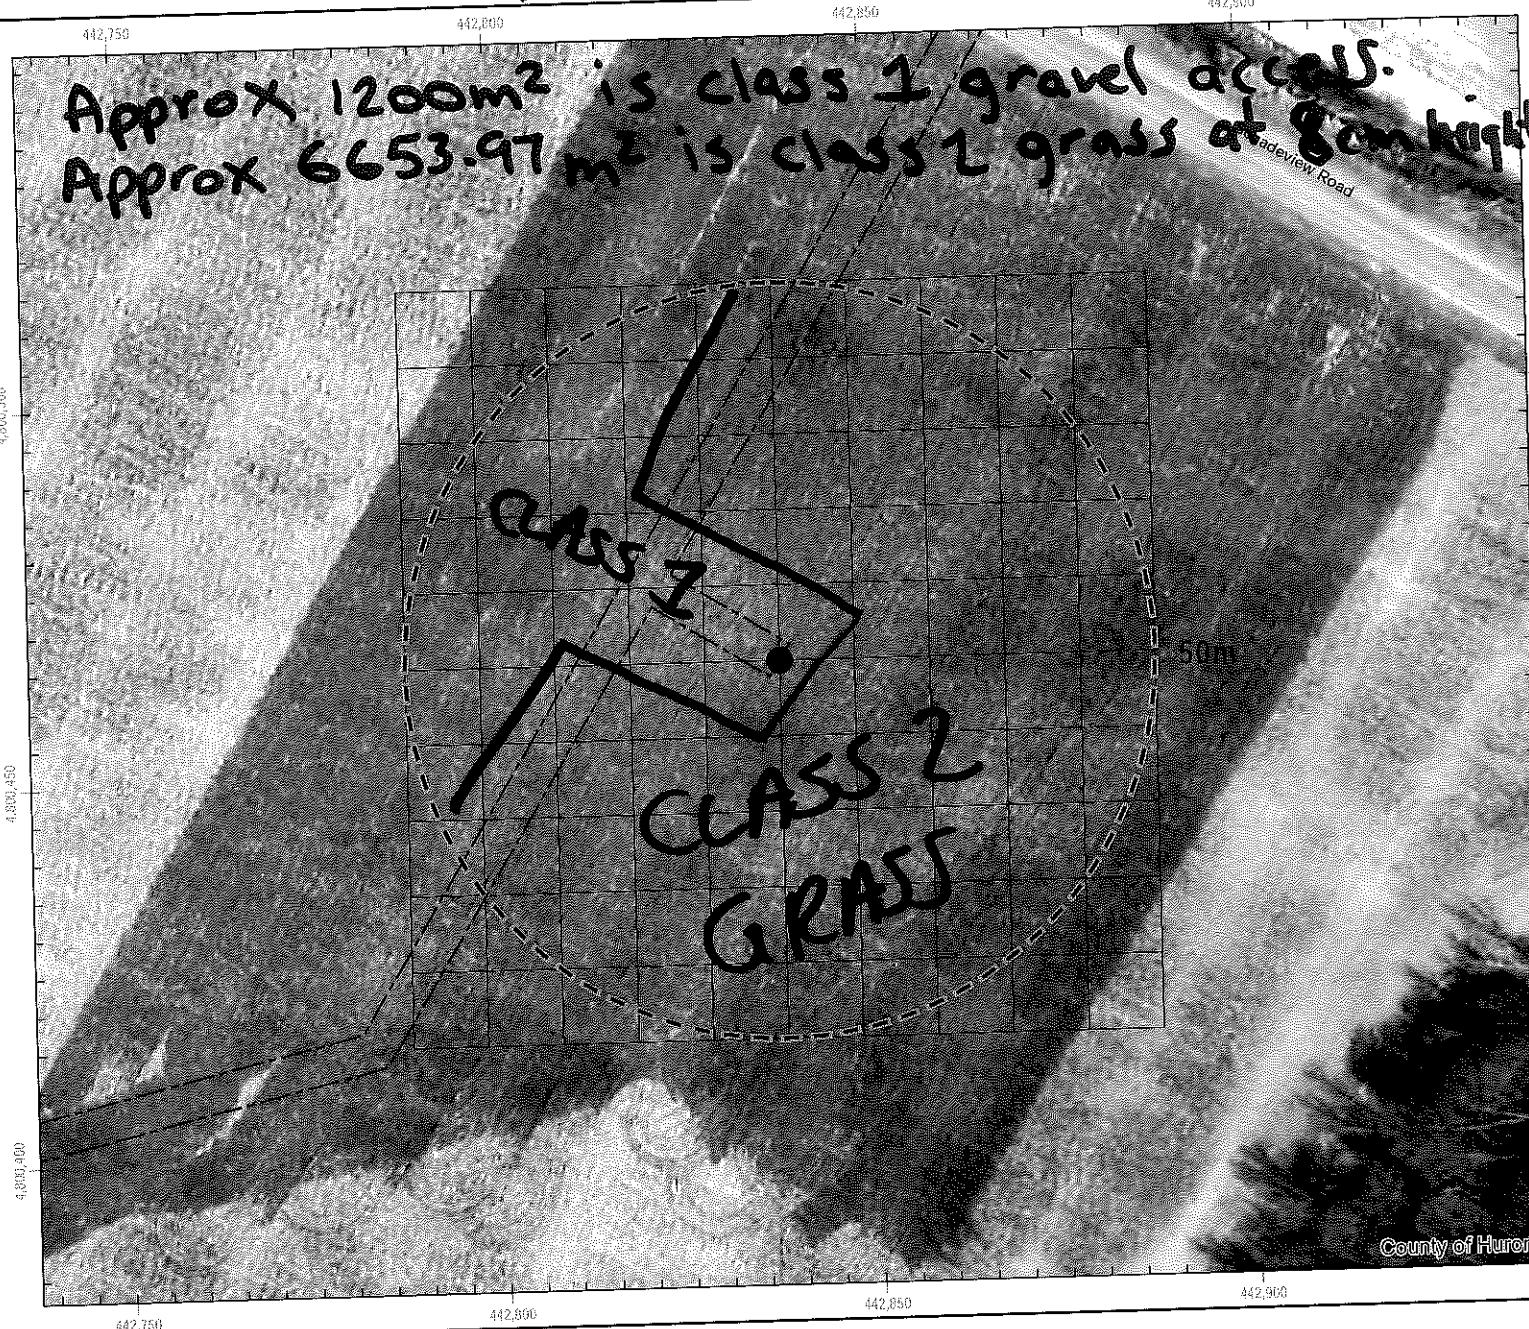 442,750 442,800 442,850 442,900
Approx 1200m² is class 1 gravel access.
Approx 6653.97 m² is class 2 grass at 8cm height
adeview Road
CLASS 1
50m
CLASS 2
GRASS
4,800,450
4,800,400
County of Huron
442,750 442,800 442,850 442,900